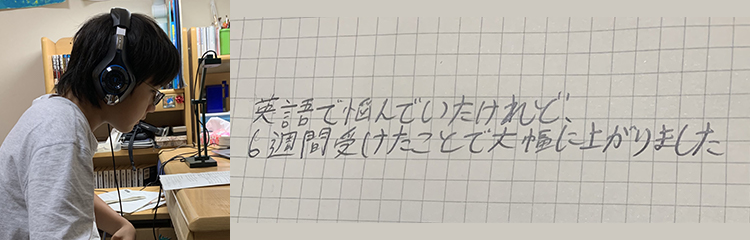 英語で悩んでいたけれど、
6週間受けたことで大幅に上がりました